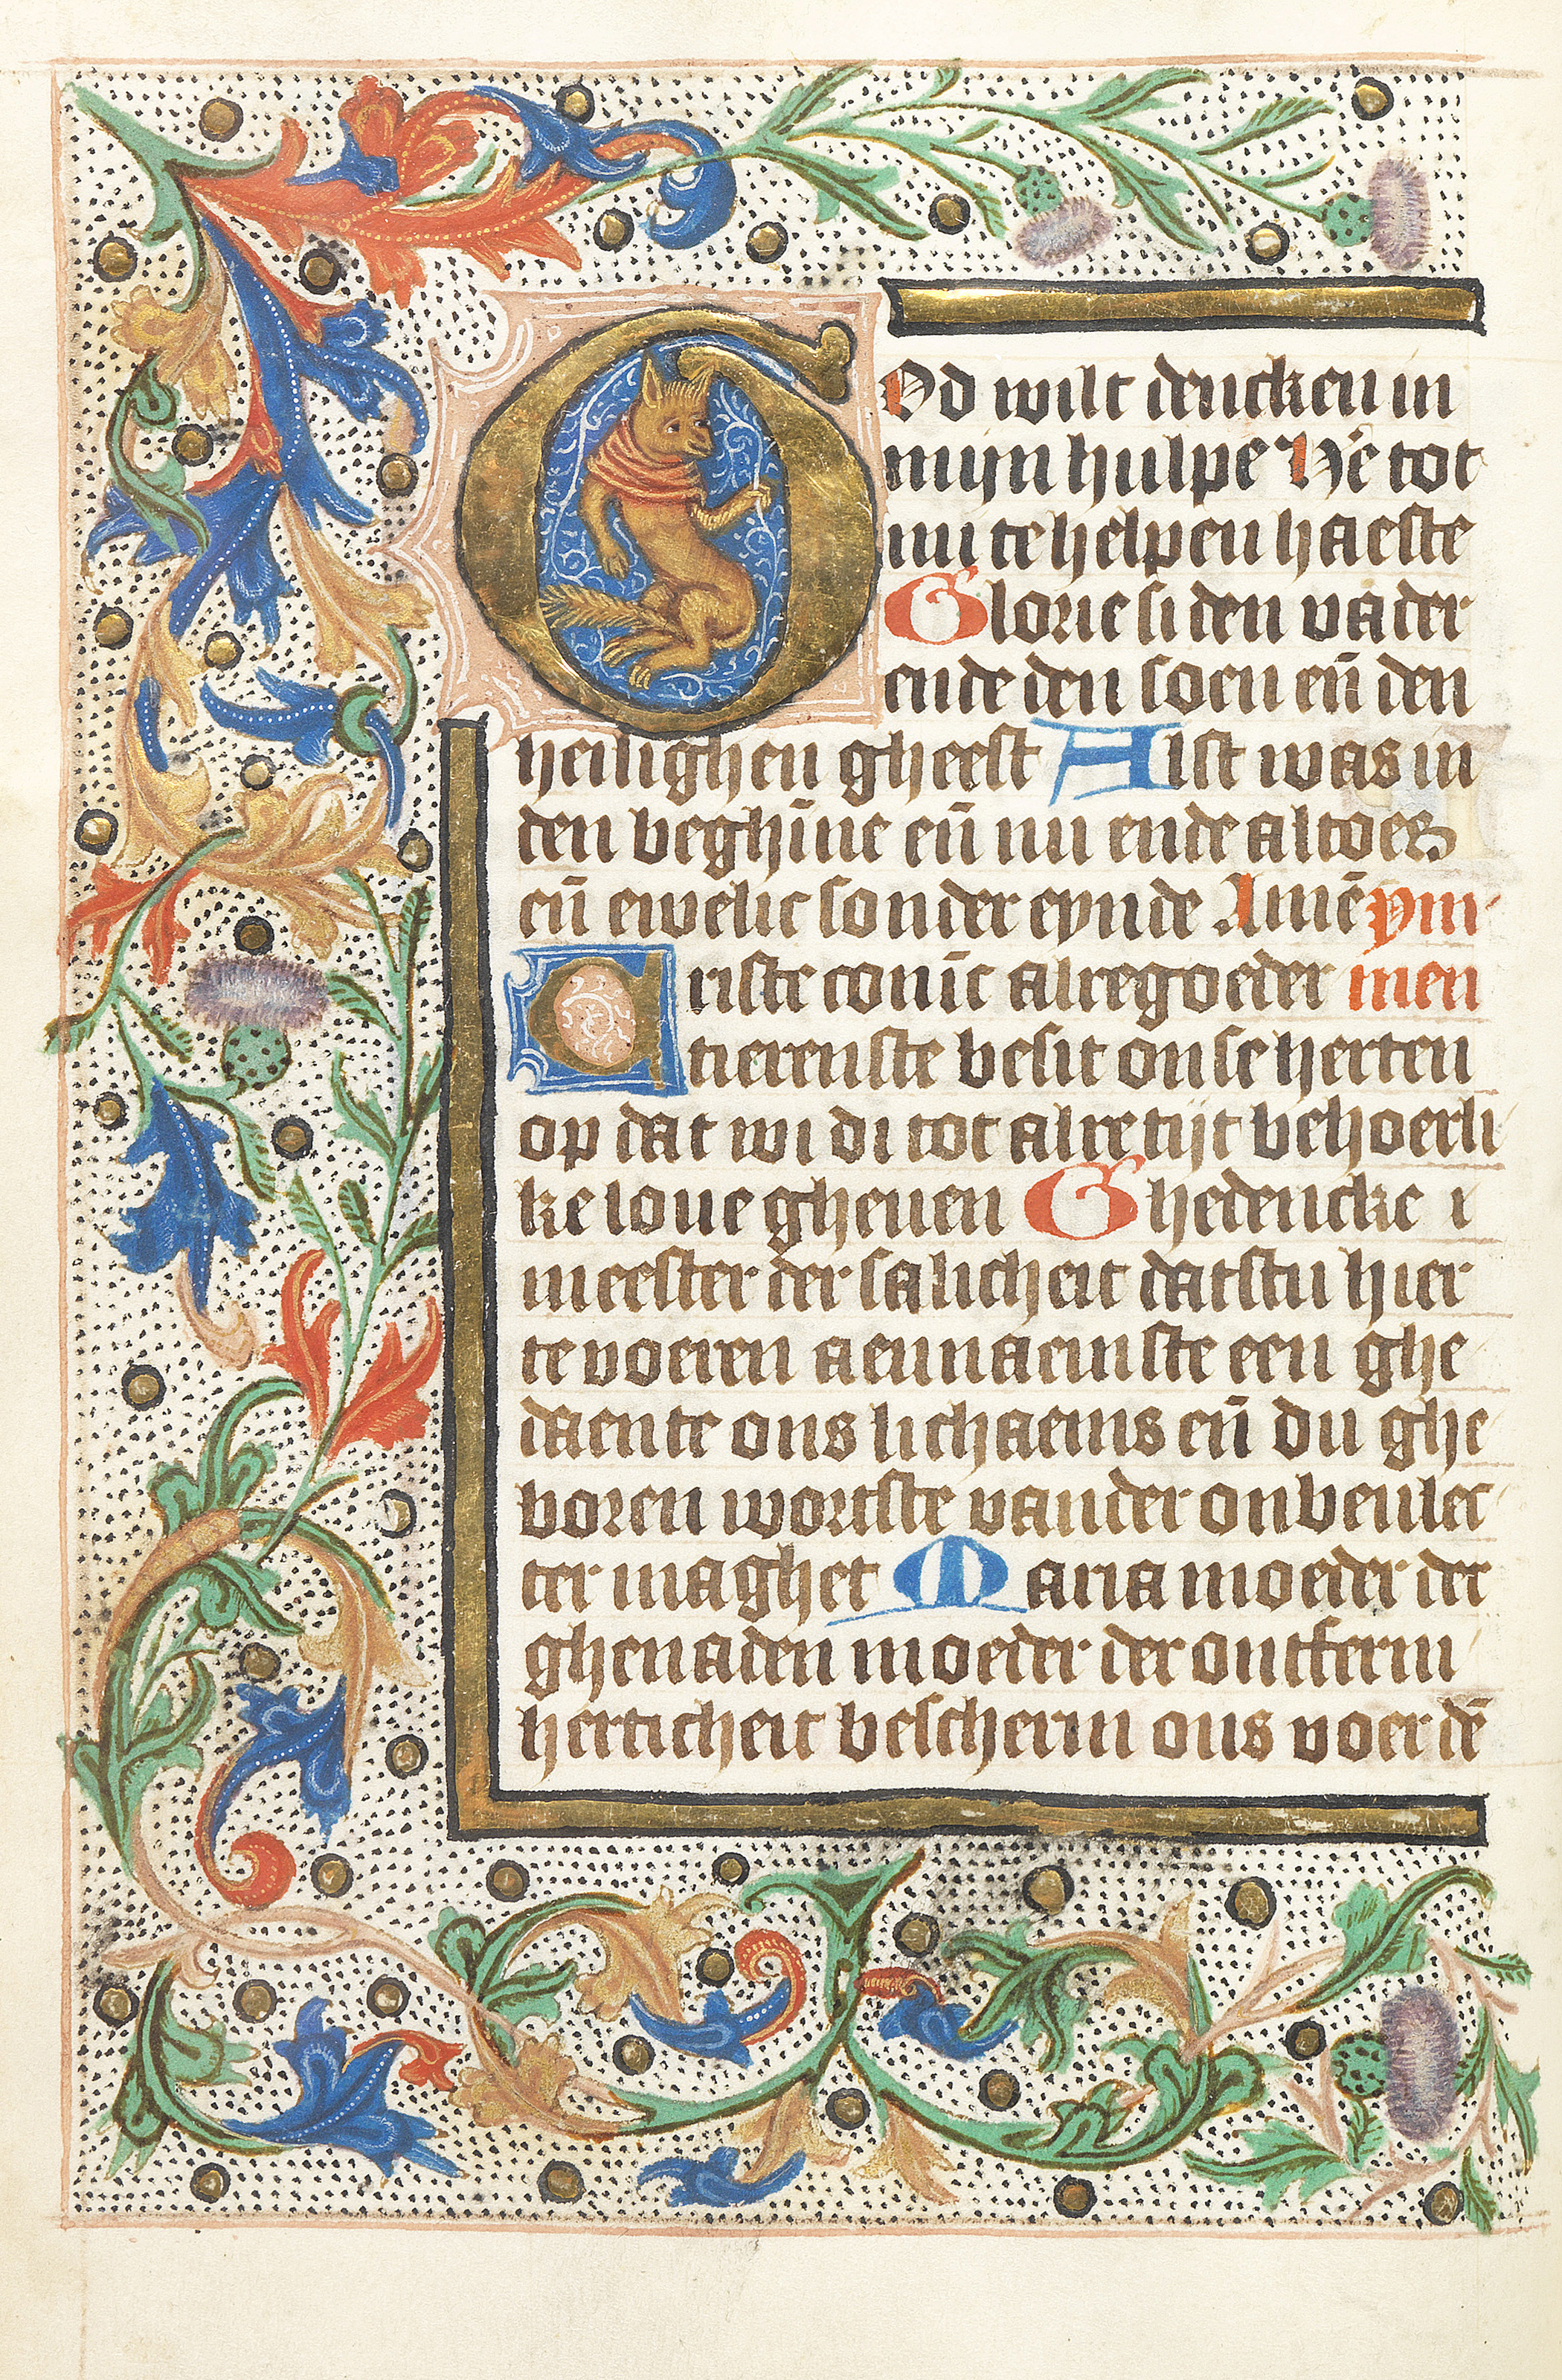 God wilt dencken in
mijn hulpe Hē tot
mi te helpen haeste
Glorie si den vader
ende den soen eñ den
heilighen gheest Alst was in
den beghīne eñ nu ende altoes
eñ ewelic sonder eynde Amē ym
Criste conīc alregoeder men
tierenste besit onse herten
op dat wi di tot alre tijt behoerli
ke loue gheuen Ghedencke i
meester der salicheit datstu hier
te voeren aennaemste een ghe
daente ons lichaems eñ du ghe
boren wortste vander onbeulec
ter maghet Maria moeder der
ghenaden moeder der ontferm
herticheit bescherm ons voer dē